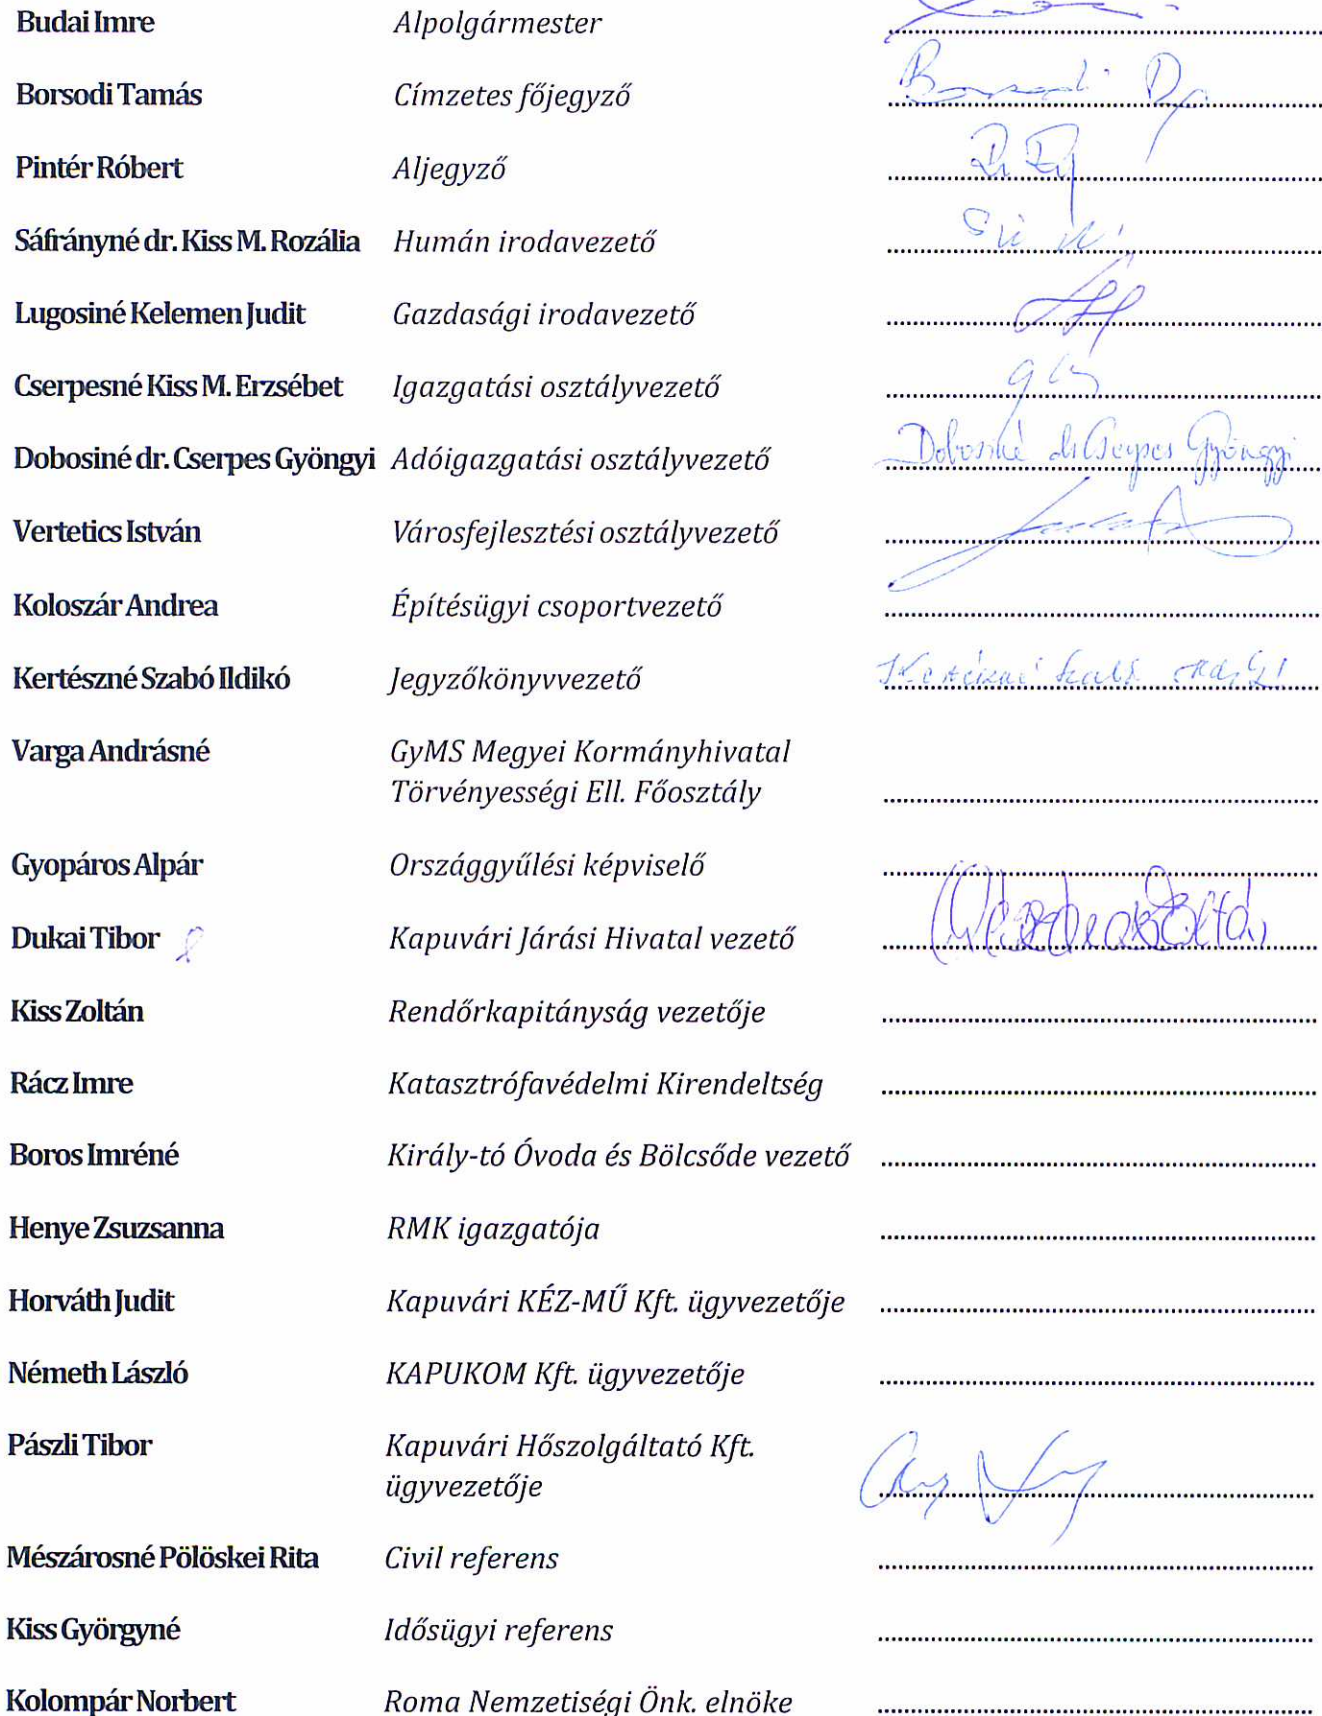 Budai Imre Alpolgármester
Borsodi Tamás Címzetes főjegyző Borsodi
Pintér Róbert Aljegyző
Sáfrányné dr. Kiss M. Rozália Humán irodavezető
Lugosiné Kelemen Judit Gazdasági irodavezető
Cserpesné Kiss M. Erzsébet Igazgatási osztályvezető
Dobosiné dr. Cserpes Gyöngyi Adóigazgatási osztályvezető Dobosiné dr Cserpes Gyöngyi
Vertetics István Városfejlesztési osztályvezető
Koloszár Andrea Építésügyi csoportvezető
Kertészné Szabó Ildikó Jegyzőkönyvvezető Kertészné Szabó Ildikó
Varga Andrásné GyMS Megyei Kormányhivatal
Törvényességi Ell. Főosztály
Gyopáros Alpár Országgyűlési képviselő
Dukai Tibor Kapuvári Járási Hivatal vezető
Kiss Zoltán Rendőrkapitányság vezetője
Rácz Imre Katasztrófavédelmi Kirendeltség
Boros Imréné Király-tó Óvoda és Bölcsőde vezető
Henye Zsuzsanna RMK igazgatója
Horváth Judit Kapuvári KÉZ-MŰ Kft. ügyvezetője
Németh László KAPUKOM Kft. ügyvezetője
Pászli Tibor Kapuvári Hőszolgáltató Kft.
ügyvezetője
Mészárosné Pölöskei Rita Civil referens
Kiss Györgyné Idősügyi referens
Kolompár Norbert Roma Nemzetiségi Önk. elnöke